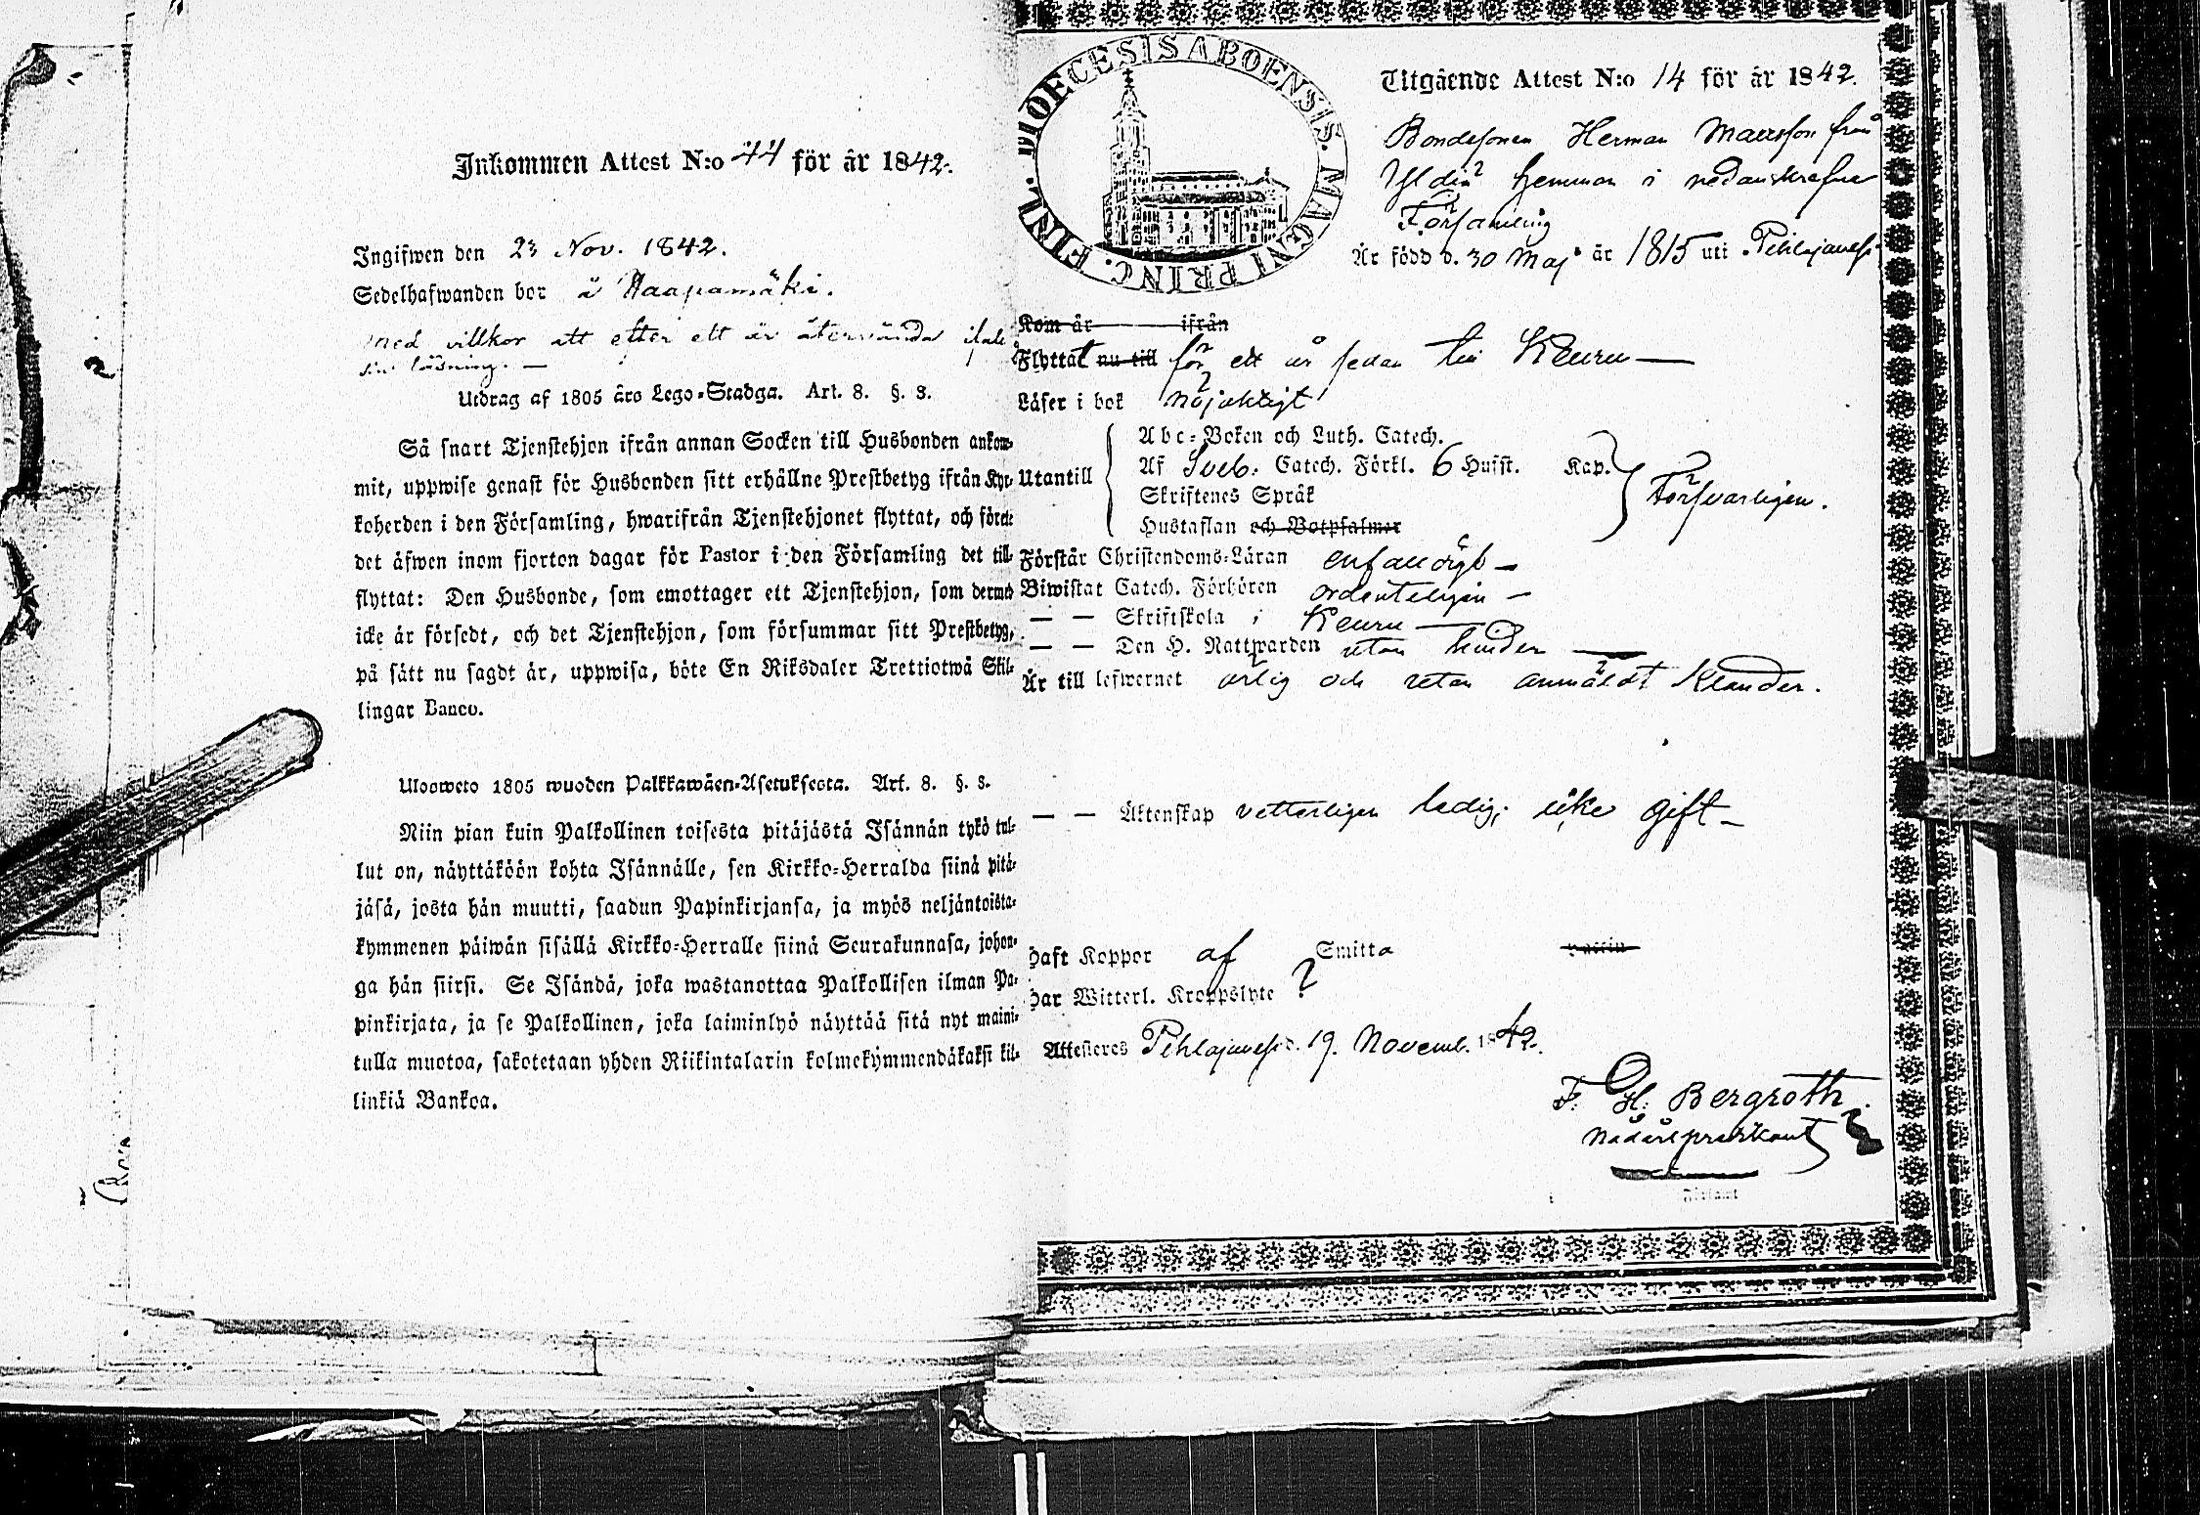 Inkommen Attest N:o 44 för år 1842.
Ingifwen den 23 Nov. 1842.
Sedelhafwanden bor å Haapamäki.
med villkor att efter ett år återvända
läsning. —
Utdrag af 1805 års Lego-Stadga. Art. 8. §. 3.
Så snart Tjenstehjon ifrån annan Socken till Husbonden ankom-
mit, uppwise genast för Husbonden sitt erhållne Prestbetyg ifrån Kyr-
koherden i den Församling, hwarifrån Tjenstehjonet flyttat, och förete
det äfwen inom fjorton dagar för Pastor i den Församling det till-
flyttat: Den Husbonde, som emottager ett Tjenstehjon, som dermed
icke är försedt, och det Tjenstehjon, som försummar sitt Prestbetyg,
på sätt nu sagdt är, uppwisa, böte En Riksdaler Trettiotwå Skil-
lingar Banco.
Ulosweto 1805 wuoden Palkkawäen-Asetuksesta. Art. 8. §. 3.
Niin pian kuin Palkollinen toisesta pitäjästä Isännän tykö tul-
lut on, näyttäköön kohta Isännälle, sen Kirkko-Herralda siinä pitä-
jäsä, josta hän muutti, saadun Papinkirjansa, ja myös neljäntoista-
kymmenen päiwän sisällä Kirkko-Herralle siinä Seurakunnasa, johon-
ga hän siirsi. Se Isändä, joka wastanottaa Palkollisen ilman Pa-
pinkirjata, ja se Palkollinen, joka laiminlyö näyttää sitä nyt maini-
tulla muotoa, sakotetaan yhden Riikintalarin kolmekymmendäkaksi kil-
linkiä Bankoa.
DIOECESIS ABOENSIS. MAGNI PRINC. FINL.
Utgående Attest N:o 14 för år 1842.
Bondesonen Herman Mattsson från
hemman i nedanskrefne
Församling
Är född d. 30 Maj år 1815 uti Pihlajavesi
Kom år ifrån
Flyttat nu till för ett år sedan till Keuru —
Läser i bok nöjaktigt
Utantill
Abc-Boken och Luth. Catech.
Af Sveb. Catech. Förkl. 6 Hufst. Kap.
Skriftenes Språk
Hustaflan och Botpsalmer
Försvarligen.
Förstår Christendoms-Läran enfaldigt —
Biwistat Catech. Förhören ordenteligen —
— — Skriftskola i Keuru —
— — Den H. Nattwarden utan hinder —
Är till lefwernet ärlig och utan anmäldt klander.
— — Äktenskap vetterligen ledig; icke gift —
Haft Koppor af Smitta
Har Witterl. Kroppslyte ?
Attesteres Pihlajavesi d. 19. Novemb. 1842.
F. H. Bergroth.
Nådårspredikant